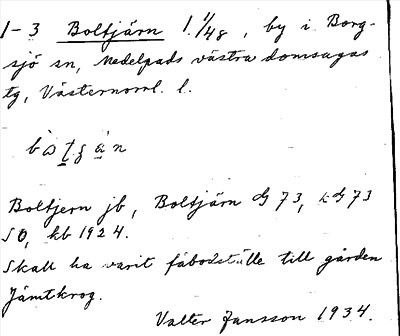 1-3 Boltjärn 1 1/48, by i Borg-
sjö sn, Medelpads västra domsagas
tg, Västernorrl. l.
Boltjern jb, Boltjärn G 73, k G 73
SÖ, kb 1924.
Skall ha varit fäbodställe till gården
Jämtkrog.
Valter Jansson 1934.